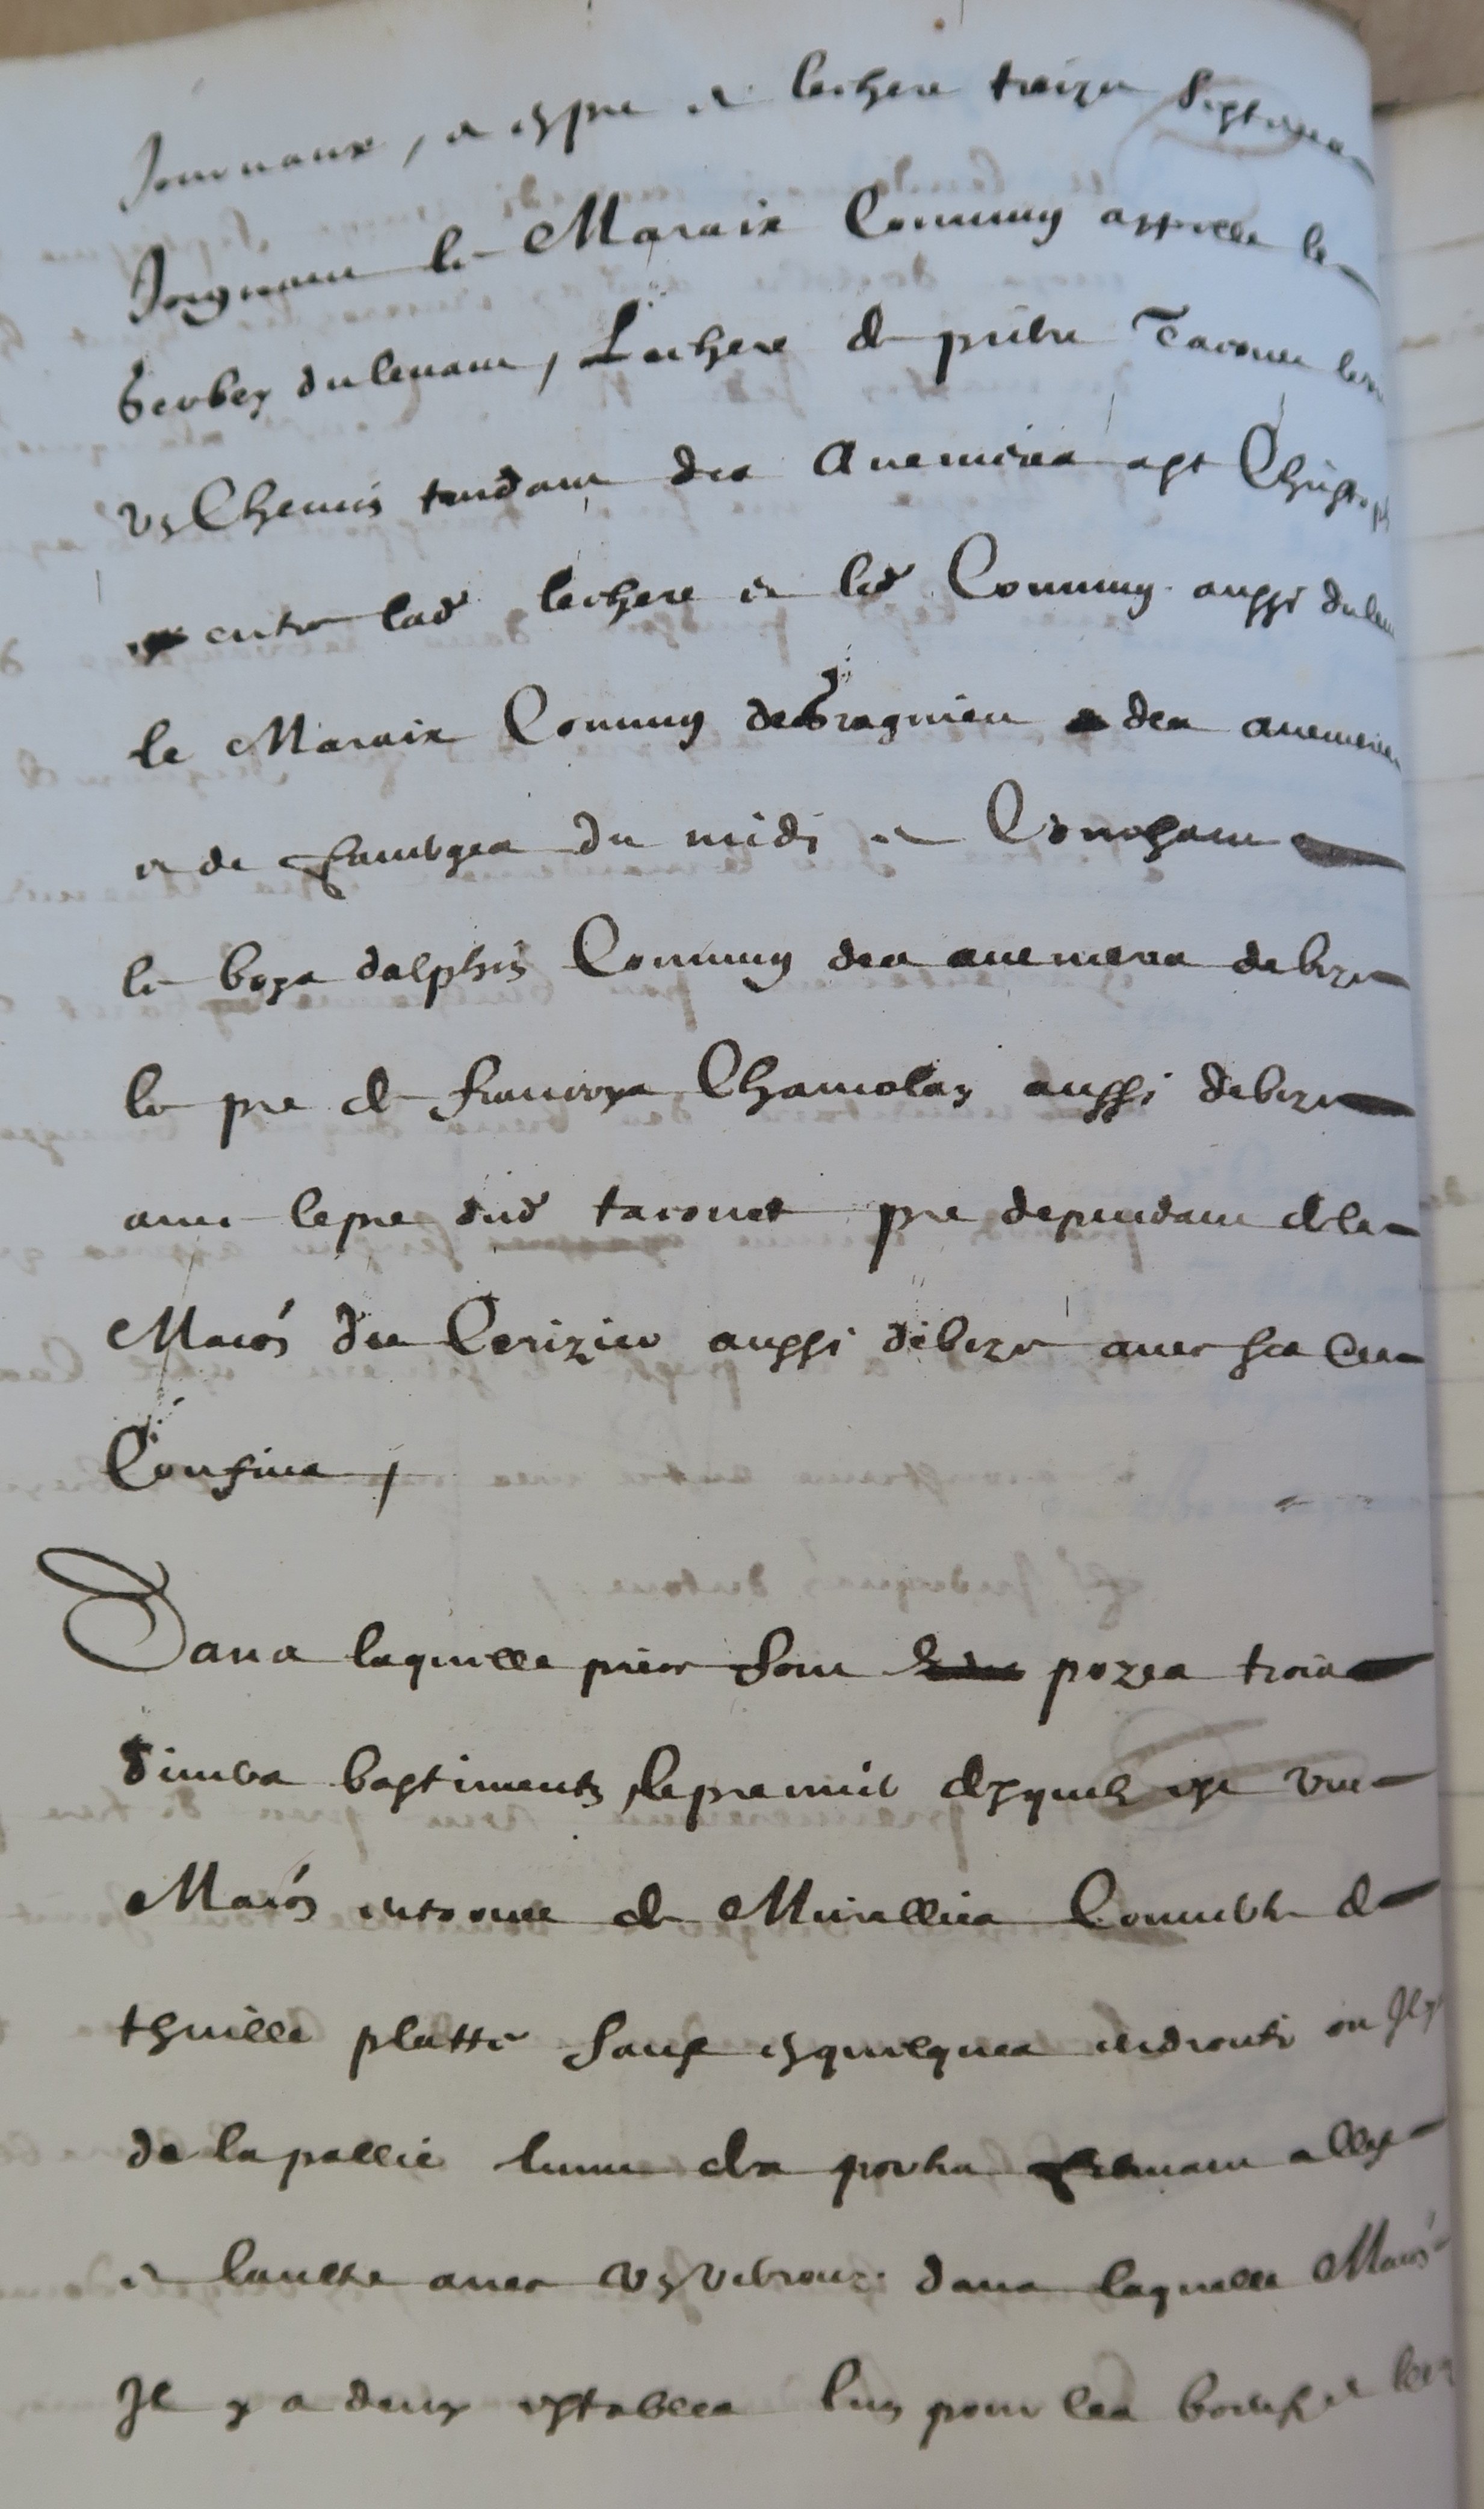 Journaux, et en pre et lechere treize septiers
Joignant le Maraix Commung appelle le
Gerbey du levant, Lechere de pierre Taconet
ung Chemin tendant des Avenieres a st Christoph
entre lad lechere et led Commung aussi du lev
le Maraix Commung de Bragnieu des avenieres
et de du midi et Couchant
le boys dalphin Commung des avenieres de bize
le pre de francoys Chamolay aussi de bize
avec le pre dud taconet pre dependant de la
Maison du Cerizier aussi de bize avec ses
Confins,
Dans laquelle piece sont pozes trois
divers bastiments, le premier desquels est une
Maison entournee de Murallies Couverte de
thuille platte sauf en quelques endroicts ou Il y
de la pallie lune des portes fermant a
et laultre avec ung verrouz. dans laquelle Maison
Il y a deux estables lung pour les boeufs et